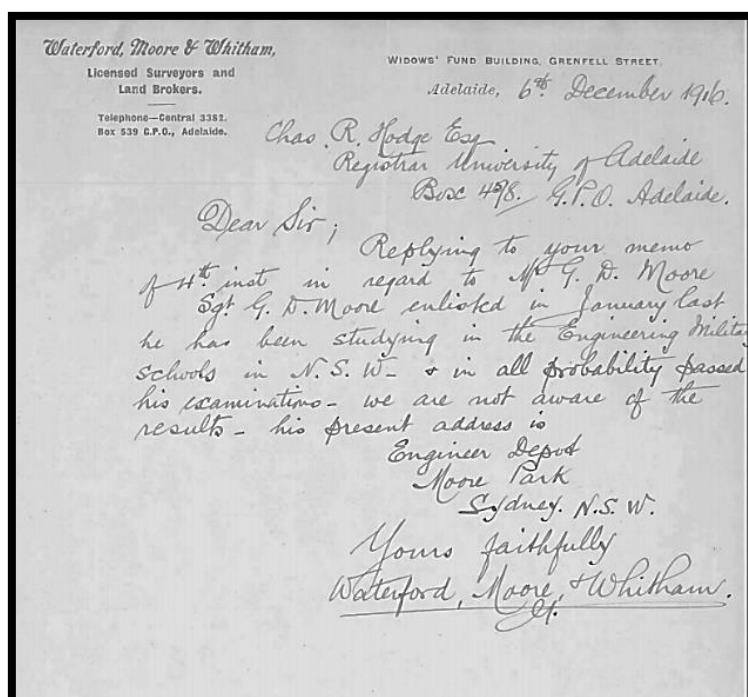 Waterford, Moore & Whitham,
Licensed Surveyors and
Land Brokers.
Telephone—Central 3382.
Box 539 G.P.O., Adelaide.
WIDOWS' FUND BUILDING, GRENFELL STREET,
Adelaide, 6th December 1916.
Chas. R. Hodge Esq
Registrar University of Adelaide
Box 498/ G.P.O. Adelaide.
Dear Sir;
Replying to your memo
of 4th inst in regard to Mr G. D. Moore
Sgt G. D. Moore enlisted in January last
he has been studying in the Engineering Military
schools in N.S.W- & in all probability passed
his examinations - we are not aware of the
results - his present address is
Engineer Depot
Moore Park
Sydney. N.S.W.
Yours faithfully
Waterford, Moore, & Whitham.